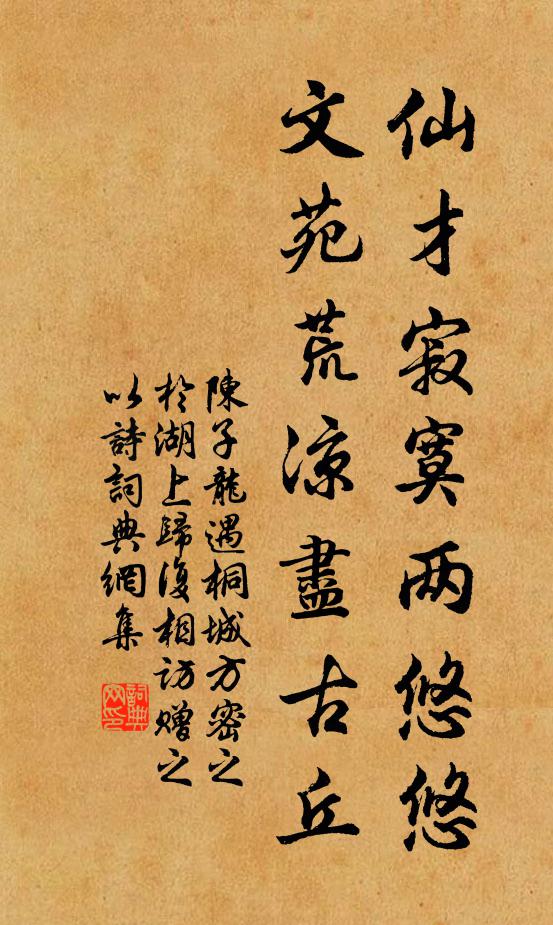 仙才寂寞两悠悠
文苑荒凉盡古丘
陳子龍遇桐城方密之
於湖上歸復相訪贈之
以詩詞典網集
詞典网印